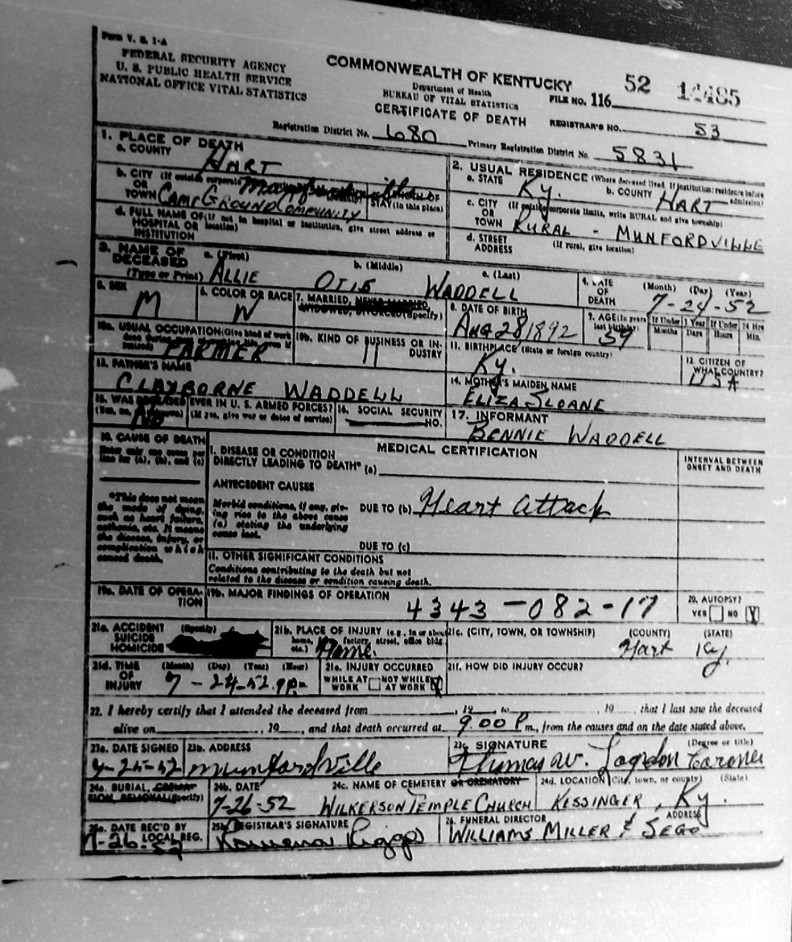 Form V. S. 1-A
FEDERAL SECURITY AGENCY
U. S. PUBLIC HEALTH SERVICE
NATIONAL OFFICE VITAL STATISTICS
COMMONWEALTH OF KENTUCKY
Department of Health
BUREAU OF VITAL STATISTICS
CERTIFICATE OF DEATH
FILE NO. 116 52 14485
REGISTRAR'S NO. 53
Registration District No. 680 Primary Registration District No. 5831
1. PLACE OF DEATH
a. COUNTY HART
b. CITY (If outside corporate
OR
TOWN CAMP GROUND COMMUNITY (in this place)
d. FULL NAME OF (If not in hospital or institution, give street address or
HOSPITAL OR location)
INSTITUTION
2. USUAL RESIDENCE (Where deceased lived. If institution: residence before
a. STATE Ky. b. COUNTY HART admission)
c. CITY (If outside corporate limits, write RURAL and give township)
OR
TOWN RURAL - MUNFORDVILLE
d. STREET (If rural, give location)
ADDRESS
3. NAME OF a. (First) b. (Middle) c. (Last)
DECEASED
(Type or Print) ALLIE OTIS WADDELL
4. DATE (Month) (Day) (Year)
OF
DEATH 7-24-52
5. SEX M
6. COLOR OR RACE W
7. MARRIED, NEVER MARRIED,
WIDOWED, DIVORCED (Specify)
8. DATE OF BIRTH
AUG 28 1892
9. AGE (In years If Under 1 Year If Under 24 Hrs
last birthday) 59 Months Days Hours Min.
10a. USUAL OCCUPATION (Give kind of work
FARMER
10b. KIND OF BUSINESS OR IN-
DUSTRY
11. BIRTHPLACE (State or foreign country)
Ky.
12. CITIZEN OF
WHAT COUNTRY?
USA
13. FATHER'S NAME
CLAYBORNE WADDELL
14. MOTHER'S MAIDEN NAME
ELIZA SLOANE
15. WAS DECEASED EVER IN U. S. ARMED FORCES?
(Yes, no, or unknown) (If yes, give war or dates of service)
No
16. SOCIAL SECURITY
NO.
17. INFORMANT
BENNIE WADDELL
18. CAUSE OF DEATH
Enter only one cause per
line for (a), (b), and (c)
MEDICAL CERTIFICATION
INTERVAL BETWEEN
ONSET AND DEATH
I. DISEASE OR CONDITION
DIRECTLY LEADING TO DEATH* (a)
*This does not mean
the mode of dying,
such as heart failure,
asthenia, etc. It means
the disease, injury, or
complication which
caused death.
ANTECEDENT CAUSES
Morbid conditions, if any, giv-
ing rise to the above cause
(a) stating the underlying
cause last.
DUE TO (b) Heart attack
DUE TO (c)
II. OTHER SIGNIFICANT CONDITIONS
Conditions contributing to the death but not
related to the disease or condition causing death.
19a. DATE OF OPERA-
TION
19b. MAJOR FINDINGS OF OPERATION
4343-082-17
20. AUTOPSY?
YES NO X
21a. ACCIDENT (Specify)
SUICIDE
HOMICIDE
21b. PLACE OF INJURY (e.g., in or about
home, factory, street, office bldg.
etc.) Home.
21c. (CITY, TOWN, OR TOWNSHIP) (COUNTY) (STATE)
Hart Ky.
21d. TIME (Month) (Day) (Year) (Hour)
OF
INJURY 7-24-52 9P.
21e. INJURY OCCURRED
WHILE AT NOT WHILE
WORK AT WORK X
21f. HOW DID INJURY OCCUR?
22. I hereby certify that I attended the deceased from , 19 to , 19 , that I last saw the deceased
alive on , 19 , and that death occurred at 9:00 P m., from the causes and on the date stated above.
23a. DATE SIGNED
23b. ADDRESS
Munfordville
23c. SIGNATURE (Degree or title)
Thomas W. Logsdon Coroner
24a. BURIAL, CREMA-
TION, REMOVAL (Specify)
24b. DATE
7-26-52
24c. NAME OF CEMETERY OR CREMATORY
WILKERSON TEMPLE CHURCH
24d. LOCATION (City, town, or county) (State)
KESSINGER, Ky.
25a. DATE REC'D BY
LOCAL REG.
7-26-52
25b. REGISTRAR'S SIGNATURE
Riggs
26. FUNERAL DIRECTOR ADDRESS
WILLIAMS MILLER & SEGO